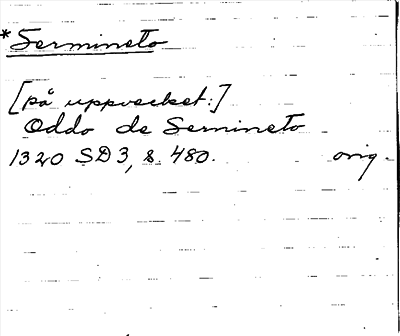 *Sermineto
[på uppvecket:]
Oddo de Sermineto
1320 SD3, s. 480. orig.